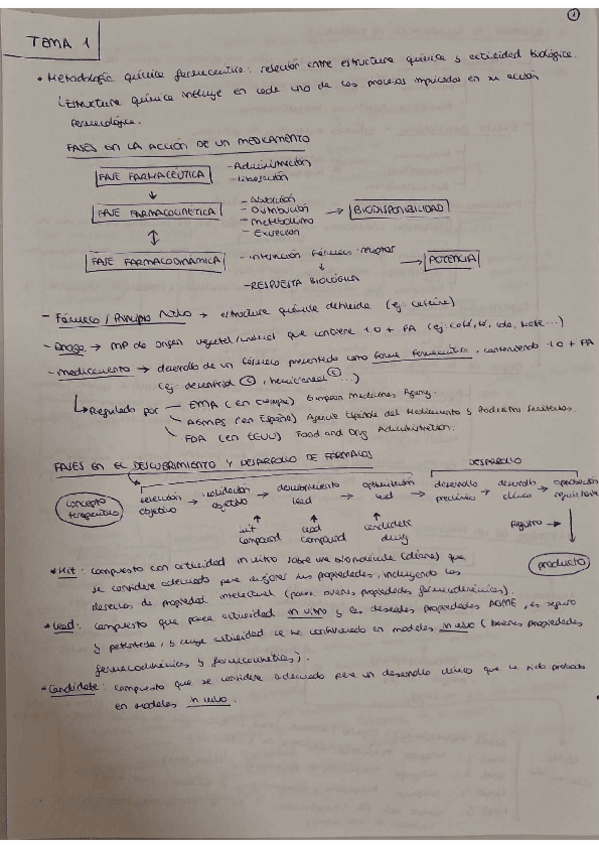 1
TEMA 1
• Metodología química farmacéutica: relación entre estructura química y actividad biológica.
Estructura química influye en cada uno de los procesos implicados en su acción
farmacológica.
FASES EN LA ACCIÓN DE UN MEDICAMENTO
FASE FARMACÉUTICA - Administración
- Liberación
FASE FARMACOCINÉTICA - Absorción
- Distribución
- Metabolismo
- Excreción
→ BIODISPONIBILIDAD
FASE FARMACODINÁMICA - interacción fármaco-receptor → POTENCIA
- RESPUESTA BIOLÓGICA
- Fármaco / Principio Activo → estructura química definida (ej: cafeína)
- Droga → MP de origen vegetal/animal que contiene 1 o + PA (ej: café, té, cola, mate...)
- Medicamento → desarrollo de un fármaco presentado como forma farmacéutica, conteniendo 1 o + PA
(ej: , ...)
Regulado por — EMA (en Europa) European Medicines Agency.
AEMPS (en España) Agencia Española del Medicamento y Productos Sanitarios.
FDA (en EEUU) Food and Drug Administration.
FASES EN EL DESCUBRIMIENTO Y DESARROLLO DE FÁRMACOS
DESARROLLO
concepto terapéutico
selección objetivo → validación objetivo → descubrimiento lead → optimización lead → desarrollo preclínico → desarrollo clínico → aprobación regulatoria
hit compound
lead compound
candidate drug
Registro →
producto
* Hit: compuesto con actividad in vitro sobre una biomolécula (diana) que
se considera adecuado para mejorar sus propiedades, incluyendo los
derechos de propiedad intelectual (posee buenas propiedades farmacodinámicas).
* Lead: compuesto que posee actividad in vitro y las deseadas propiedades ADME, es seguro
y patentable, y cuya actividad se ha confirmado en modelos in vivo (buenas propiedades
farmacodinámicas y farmacocinéticas).
* Candidate: compuesto que se considera adecuado para un desarrollo clínico que ha sido probado
en modelos in vivo.